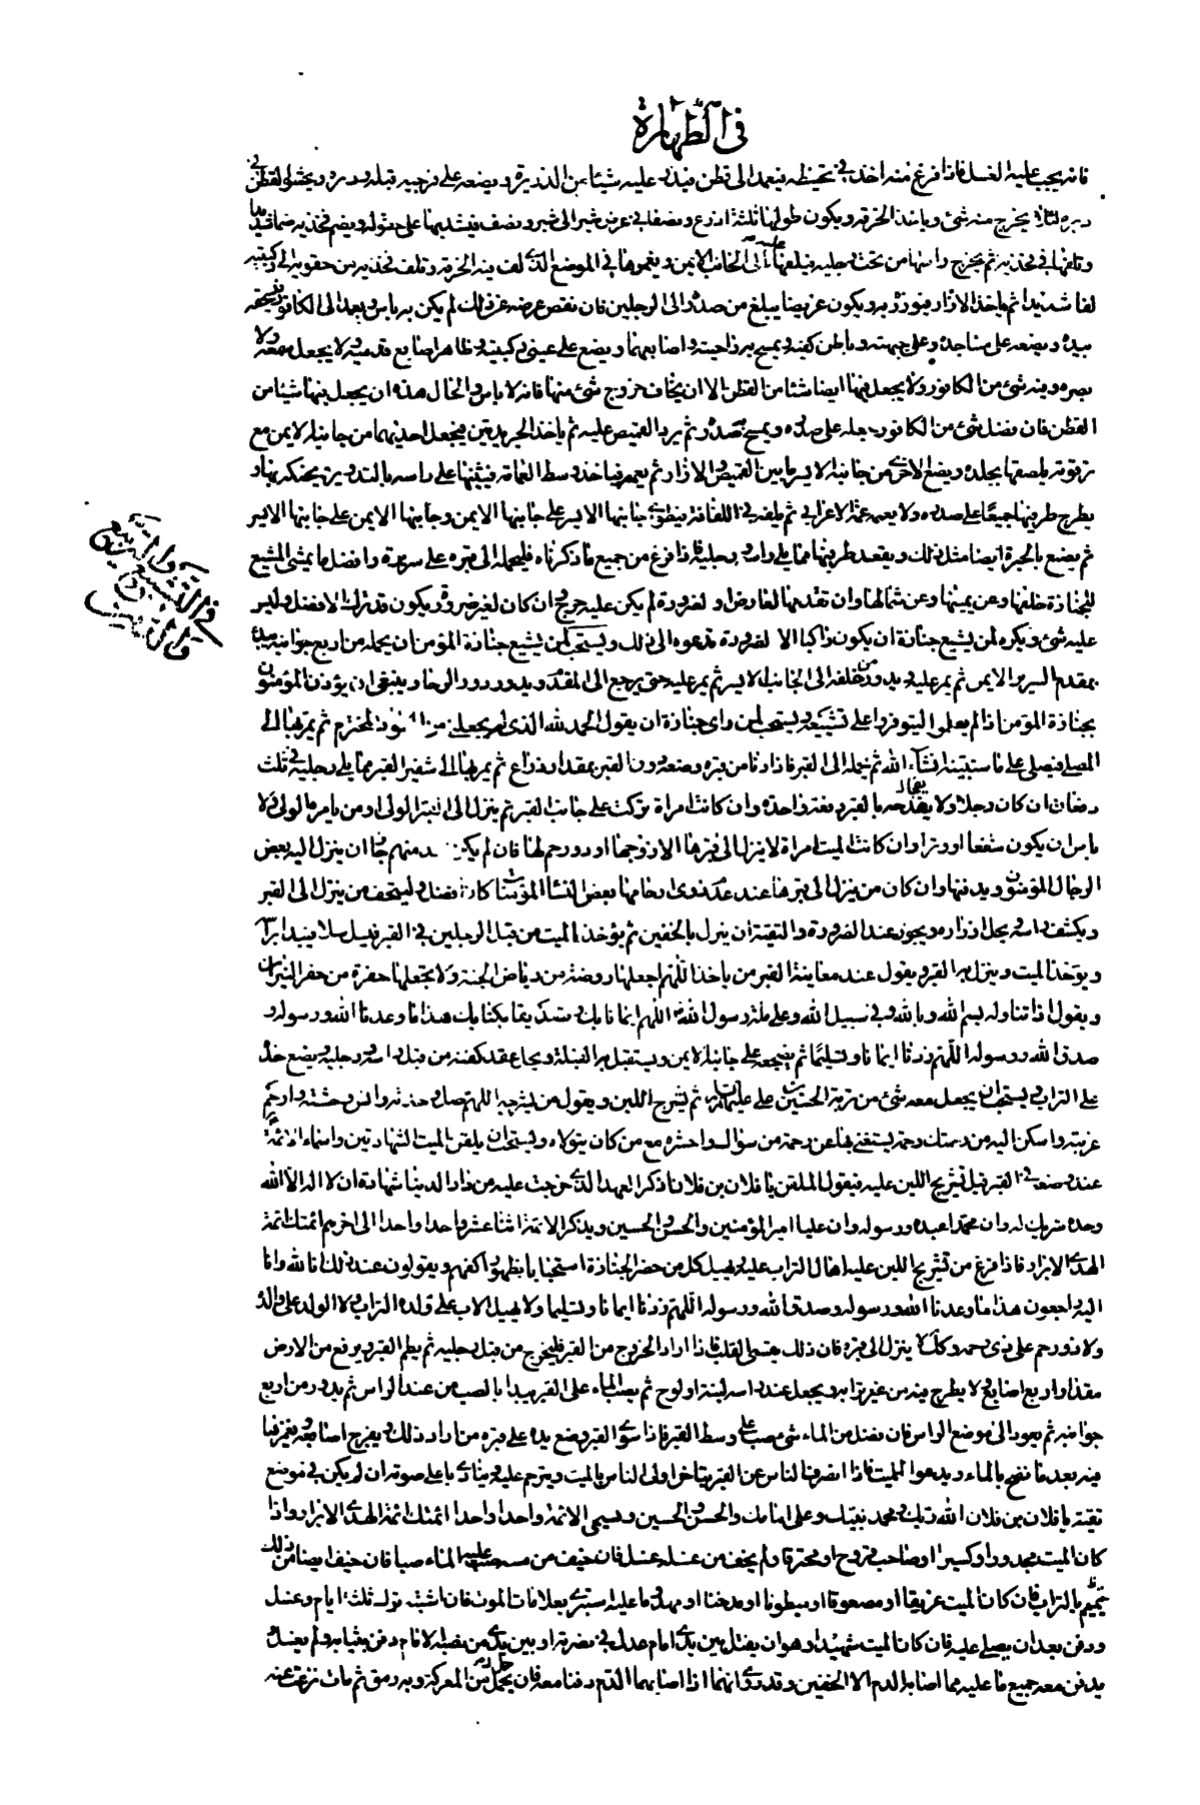 في الطهارة
فانه يجب عليه الغسل فاذا فرغ منه اخذ في تحنيطه فيعمد الى قطن فيذر عليه شيئا من الذريرة ويضعه على فرجيه قبله ودبره ويحشو القطن في
دبره لئلا يخرج منه شئ وياخذ الخرقة ويكون طولها ثلثة اذرع ونصفا في عرض شبر الى شبر ونصف فيشد بها على حقوله ويضم فخذيه ضما شديدا
ويلفها في فخذيه ثم يخرج راسها من تحت رجليه الى الجانب الايمن ويغمرها في الموضع الذي لف فيه الخرقة وتلف فخذيه من حقويه الى ركبتيه
لفا شديدا ثم ياخذ الازار فيوزر به ويكون عريضا يبلغ من صدره الى الرجلين فان نقص عرضه عن ذلك لم يكن به باس ويعمد الى الكافور فيسحقه
بيده ويضعه على مساجده وعلى جبهته وباطن كفيه ويمسح به راحتيه واصابعهما ويضع على عيني ركبتيه وظاهر اصابع قدميه ولا يجعل في سمعه ولا
بصره وفيه شئ من الكافور ولا يجعل فيها ايضا شئا من القطن الا ان يخاف خروج شئ منها فانه لا باس والحال هذه ان يجعل فيها شيئا من
القطن فان فضل شئ من الكافور جعله على صدره ويمسح به صدره ثم يرد القميص عليه ثم ياخذ الجريدتين فيجعل احديهما من جانبه الايمن مع
ترقوته يلصقها بجلده ويضع الاخرى من جانبه الايسر ما بين القميص والازار ثم يعممه فياخذ وسط العمامة فيثنيها على راسه بالتدوير ثم يحنكه بها و
يطرح طرفيها جميعا على صدره ولا يعممه عمة الاعرابي ثم يلفه في اللفافة فيطوي جانبها الايسر على جانبها الايمن وجانبها الايمن على جانبها الايسر
ثم يصنع بالحبرة ايضا مثل ذلك ويعقد طرفيها مما يلي راسه ورجليه فاذا فرغ من جميع ما ذكرناه فليحمله الى قبره على سريره وافضل ما يمشي المشيع
للجنازة خلفها وعن يمينها وعن شمالها وان تقدمها لعارض او لضرورة لم يكن عليه حرج وان كان لغير ضرورة ويكون قد ترك الافضل وليس
عليه شئ ويكره لمن يشيع جنازة ان يكون راكبا الا لضرورة تدعوه الى ذلك ويستحب لمن يشيع جنازة المؤمن ان يحمله من اربع جوانبه يبدأ
بمقدم السرير الايمن ثم يمر عليه ويدور من خلفه الى الجانب الايسر ثم يمر عليه حتى يرجع الى المقدم ويدور دور الرحا وينبغي ان يؤذن المؤمنون
بجنازة المؤمن اذا لم يعلموا ليتوفروا على تشييعه ويستحب لمن راى جنازة ان يقول الحمد لله الذي لم يجعلني من السواد المخترم ثم يمر بها الى
المصلى فيصلي على ما سنبينه انشاء الله ثم يحمله الى القبر فاذا دنا من قبره وضعه دون القبر بمقدار ذراع ثم يمر بها الى شفير القبر مما يلي رجليه في ثلث
دفعات ان كان رجلا ولا يفدحه بالقبر دفعة واحدة وان كانت امراة تركت على جانب القبر ثم ينزل الى القبر الولي او من يامره الولي ولا
باس ان يكون شفعا او وترا وان كانت الميت امراة لا ينزل الى قبرها الا زوجها او ذو رحم لها فان لم يكن احد منهم جاز ان ينزل اليه بعض
الرجال المؤمنين ويدفنها وان كان من ينزل الى قبرها عند عدم ذوي ارحامها بعض النساء المؤمنات كان افضل وليتحف من ينزل الى القبر
ويكشف راسه ويحل ازراره ويجوز عند الضرورة والتقية ان ينزل بالخفين ثم يؤخذ الميت من قبل الرجلين في القبر فيسل سلا فيبدا براسه
ويؤخذ الميت وينزل به القبر ويقول عند معاينة القبر من ياخذه اللهم اجعلها روضة من رياض الجنة ولا تجعلها حفرة من حفر النيران
ويقول اذا تناوله بسم الله وبالله وفي سبيل الله وعلى ملة رسول الله اللهم ايمانا بك وتصديقا بكتابك هذا ما وعدنا الله ورسوله و
صدق الله ورسوله اللهم زدنا ايمانا وتسليما ثم يضجعه على جانبه الايمن ويستقبل به القبلة ويحل عقد كفنه من قبل راسه ورجليه ويضع خده
على التراب ويستحب ان يجعل معه شئ من تربة الحسين بن علي عليهما السلم ثم يشرج اللبن ويقول من يشرجه اللهم صل وحدته وانس وحشته وارحم
غربته واسكن اليه من رحمتك رحمة يستغني بها عن رحمة من سواك واحشره مع من كان يتولاه ويستحب ان يلقن الميت الشهادتين واسماء الائمة
عند وضعه في القبر قبل تشريج اللبن عليه فيقول الملقن يا فلان بن فلان اذكر العهد الذي خرجت عليه من دار الدنيا شهادة ان لا اله الا الله
وحده لا شريك له وان محمدا عبده ورسوله وان عليا امير المؤمنين والحسن والحسين ويذكر الائمة اثنا عشر واحدا واحدا الى اخرهم ائمتك ائمة
الهدى الابرار فاذا فرغ من تشريج اللبن عليه اهال التراب عليه ويهيل كل من حضر الجنازة استحبابا بظهور اكفهم ويقولون عند ذلك انا لله وانا
اليه راجعون هذا ما وعدنا الله ورسوله وصدق الله ورسوله اللهم زدنا ايمانا وتسليما ولا يهيل الاب على ولده التراب ولا الولد على والده
ولا ذو رحم على ذي رحمه وكذلك لا ينزل الى قبره فان ذلك يقسي القلب فاذا اراد الخروج من القبر فليخرج من قبل رجليه ثم يطم القبر ويرفع من الارض
مقدار اربع اصابع ولا يطرح فيه من غير ترابه ويجعل عند راسه لبنة او لوح ثم يصب الماء على القبر يبدا بالصب من عند الراس ثم يدور من اربع
جوانبه ثم يعود الى موضع الراس فان فضل من الماء شئ صب على وسط القبر فاذا سوى القبر وضع يده على قبره من اراد ذلك ويفرج اصابعه ويغمزها
فيه بعد ما نضح بالماء ويدعوا للميت فاذا انصرف الناس عن القبر يتاخر اولى الناس بالميت ويترحم عليه وينادي باعلى صوته ان لم يكن في موضع
تقية يا فلان بن فلان الله ربك ومحمد نبيك وعلي امامك والحسن والحسين ويسمي الائمة واحدا واحدا ائمتك ائمة الهدى الابرار واذا
كان الميت مجدورا او كسيرا او صاحب قروح او محترقا ولم يخف من غسله غسل فان خيف من مسه صب عليه الماء صبا فان خيف ايضا من ذلك
تيمم بالتراب فان كان الميت غريقا او مصعوقا او مبطونا او مدخنا او مهدوما عليه استبرئ بعلامات الموت فان اشتبه ترك ثلثة ايام وغسل
ودفن بعد ان يصلى عليه فان كان الميت شهيدا وهو ان يقتل بين يدي امام عدل في نصرته او بين يدي من نصبه الامام دفن بثيابه ولم يغسل
يدفن معه جميع ما عليه مما اصابه الدم الا الخفين وقد روي انهما اذا اصابهما الدم دفنا معه فان حمل من المعركة وبه رمق ثم مات نزعت عنه